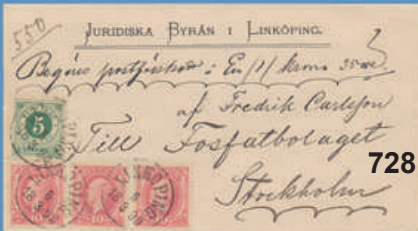 550
JURIDISKA BYRÅN I LINKÖPING.
Begäres postförskott: En /1/ krona 35 öre.
af Fredrik Carlsson
Till Fosfatbolaget
728
Stockholm
5
LINKÖPING
10